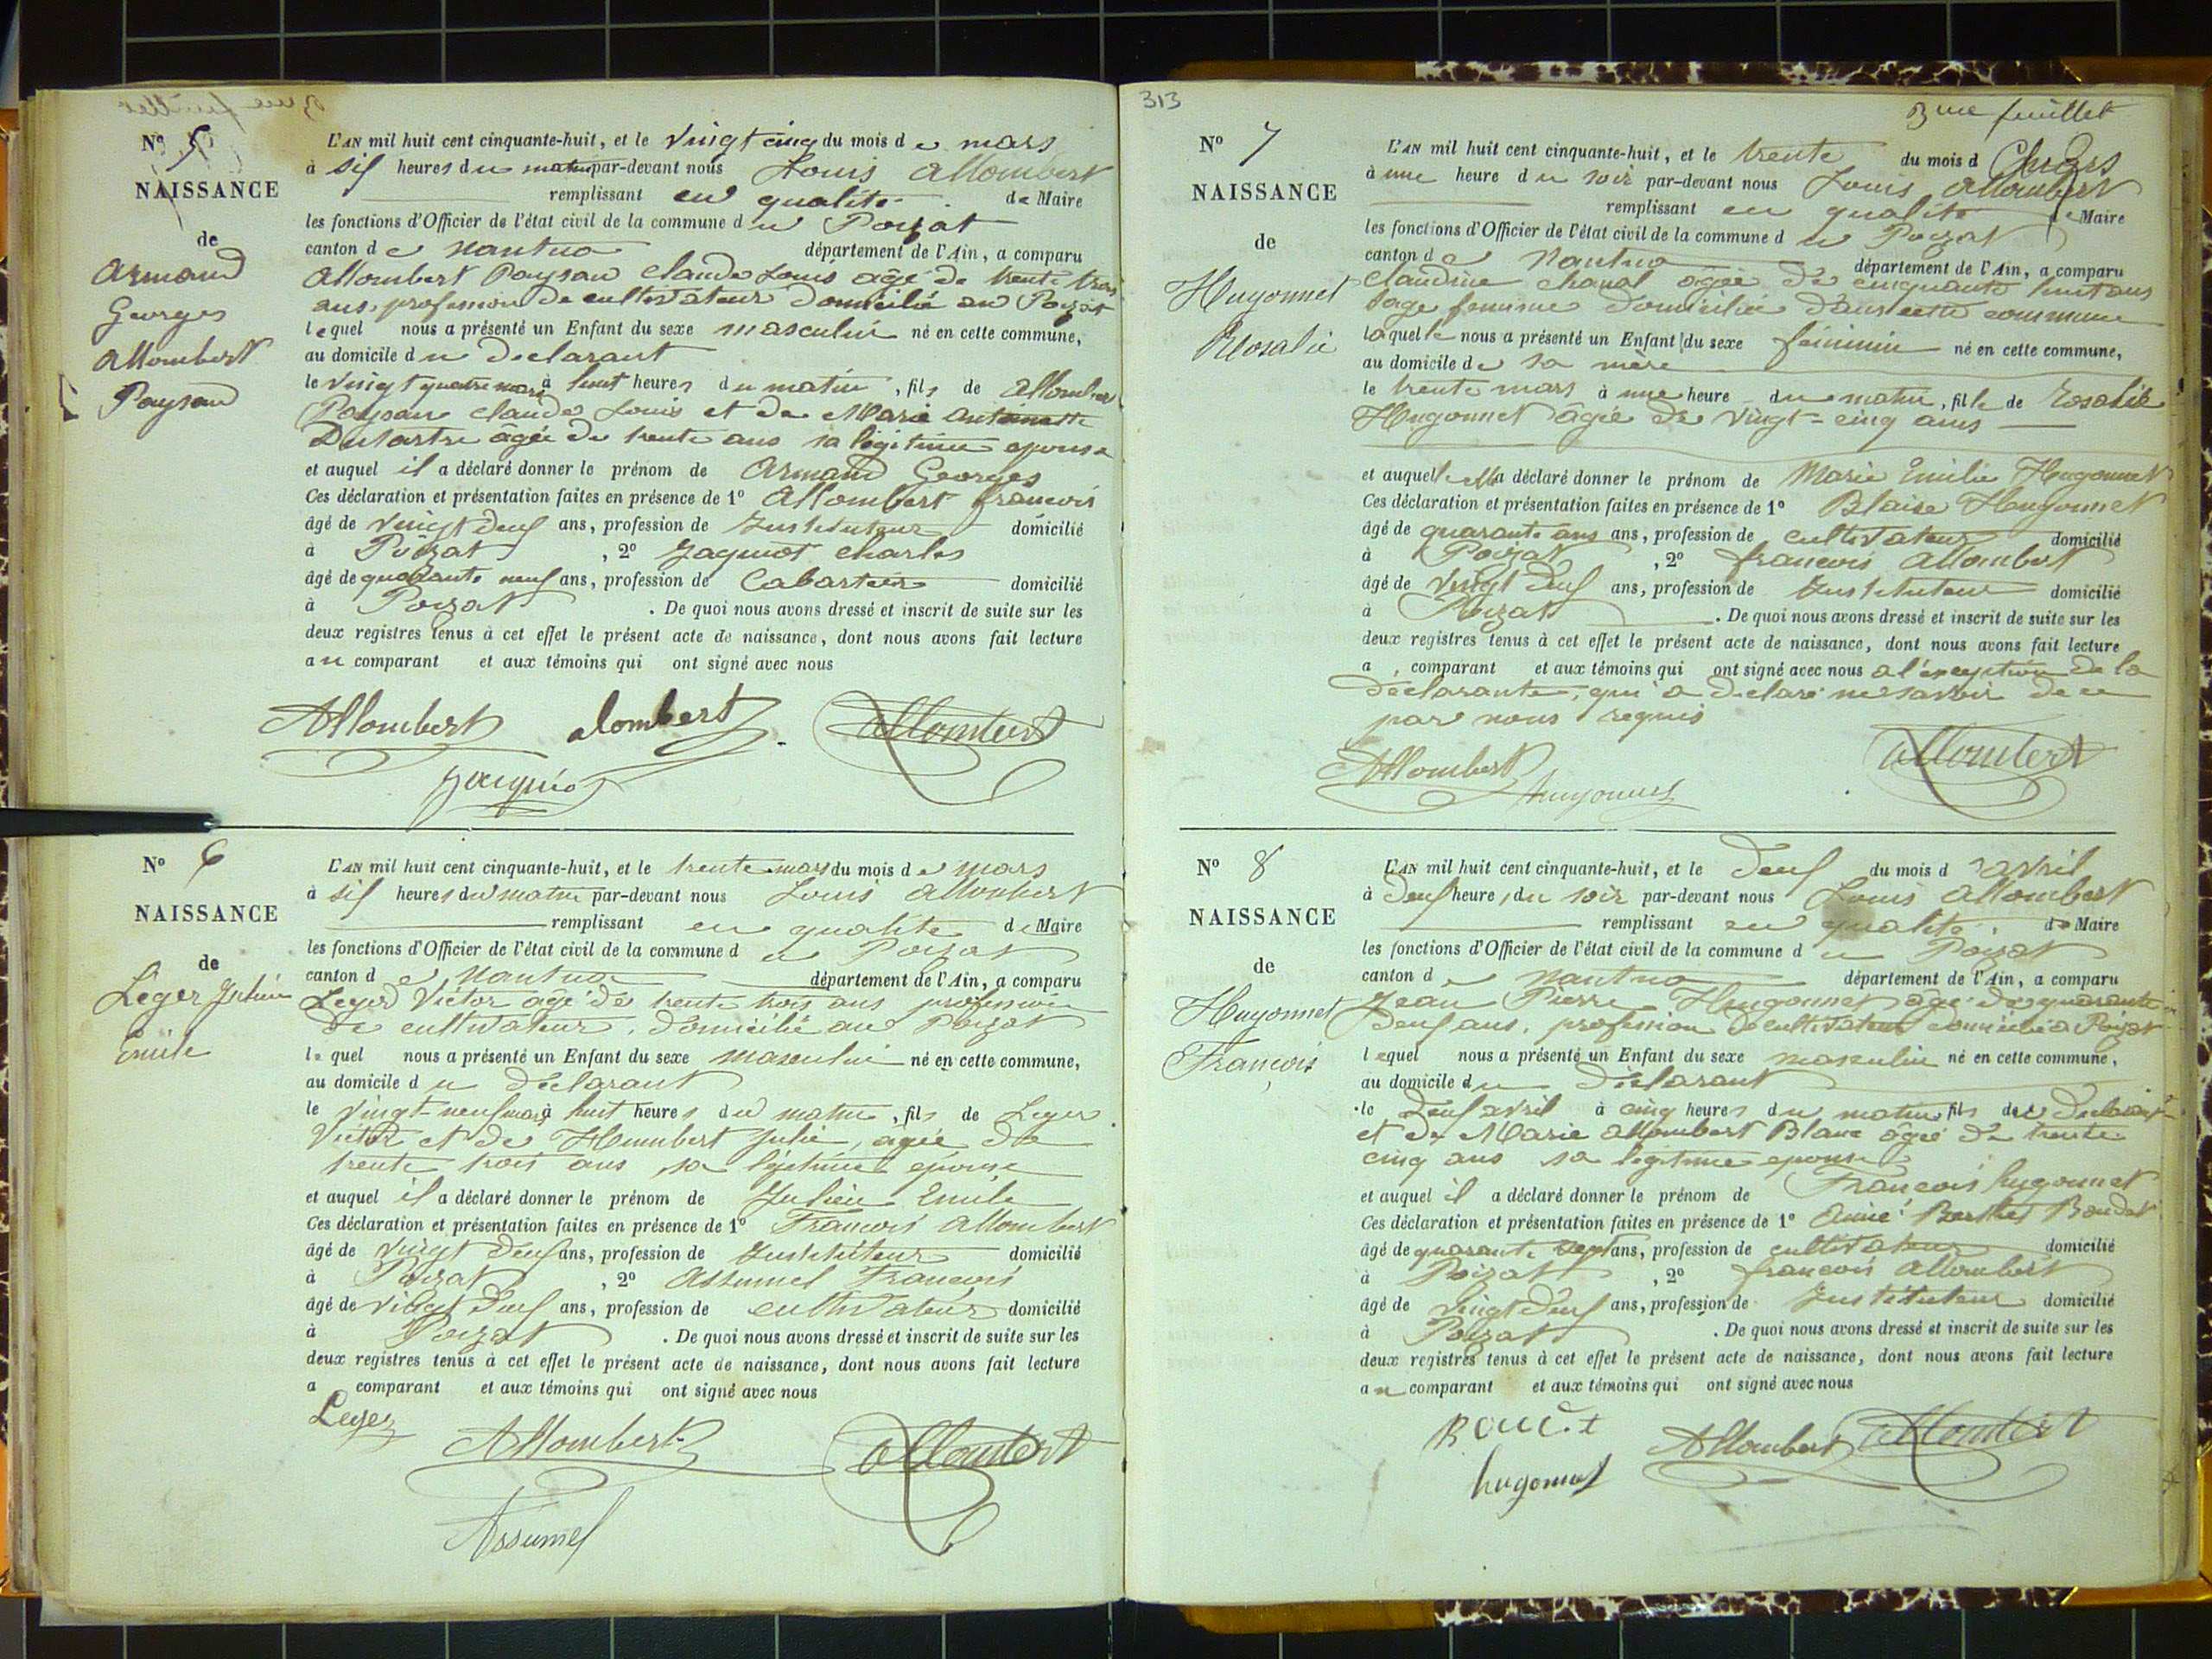 N° 5
NAISSANCE
de
Armand
Georges
Allombert
Paysan
L'AN mil huit cent cinquante-huit, et le vingt cinq du mois de mars
à six heures du matin par-devant nous Louis Allombert
remplissant en qualité de Maire
les fonctions d'Officier de l'état civil de la commune du Poizat
canton de Nantua département de l'Ain, a comparu
Allombert Paysan Claude Louis âgé de trente trois
ans, profession de cultivateur domicilié au Poizat
lequel nous a présenté un Enfant du sexe masculin né en cette commune,
au domicile du declarant
le vingt quatre mars à huit heures du matin, fils de Allombert
Paysan Claude Louis et de Marie Antoinette
Dutartre âgée de trente ans sa légitime epouse
et auquel il a déclaré donner le prénom de Armand Georges
Ces déclaration et présentation faites en présence de 1° Allombert francois
âgé de vingt deux ans, profession de Instituteur domicilié
à Poizat, 2° Jaquiot Charles
âgé de quarante neuf ans, profession de Cabartier domicilié
à Poizat. De quoi nous avons dressé et inscrit de suite sur les
deux registres tenus à cet effet le présent acte de naissance, dont nous avons fait lecture
au comparant et aux témoins qui ont signé avec nous
Allombert alombert Allombert
Jaquiot
N° 6
NAISSANCE
de
Léger Julien
Emile
L'AN mil huit cent cinquante-huit, et le trente mars du mois de mars
à six heures du matin par-devant nous Louis Allombert
remplissant en qualité de Maire
les fonctions d'Officier de l'état civil de la commune du Poizat
canton de Nantua département de l'Ain, a comparu
Leger Victor âgé de trente trois ans profession
de cultivateur, domicilié au Poizat
lequel nous a présenté un Enfant du sexe masculin né en cette commune,
au domicile du déclarant
le vingt-neuf mars à huit heures du matin, fils de Leger
Victor et de Humbert Julie, agée de
trente trois ans, sa légitime épouse
et auquel il a déclaré donner le prénom de Julien Emile
Ces déclaration et présentation faites en présence de 1° Francois Allombert
âgé de vingt deux ans, profession de Instituteur domicilié
à Poizat, 2° Assumel Francois
âgé de vingt deux ans, profession de cultivateur domicilié
à Poizat. De quoi nous avons dressé et inscrit de suite sur les
deux registres tenus à cet effet le présent acte de naissance, dont nous avons fait lecture
a comparant et aux témoins qui ont signé avec nous
Leger
Allombert Allombert
Assumel
313
3me feuillet
N° 7
NAISSANCE
de
Hugonnet
Rosalie
L'AN mil huit cent cinquante-huit, et le trente du mois d
à une heure du soir par-devant nous Louis Allombert
remplissant en qualité de Maire
les fonctions d'Officier de l'état civil de la commune du Poizat
canton de Nantua département de l'Ain, a comparu
Claudine Chanal âgée de cinquante huit ans
sage femme domiciliée dans cette commune
laquelle nous a présenté un Enfant du sexe féminin né en cette commune,
au domicile de sa mère
le trente mars à une heure du matin, fille de Rosalie
Hugonnet âgée de vingt-cinq ans
et auquel elle a déclaré donner le prénom de Marie Emilie Hugonnet
Ces déclaration et présentation faites en présence de 1° Blaise Hugonnet
âgé de quarante ans ans, profession de cultivateur domicilié
à Poizat, 2° francois Allombert
âgé de vingt deux ans, profession de Instituteur domicilié
à Poizat. De quoi nous avons dressé et inscrit de suite sur les
deux registres tenus à cet effet le présent acte de naissance, dont nous avons fait lecture
a comparant et aux témoins qui ont signé avec nous a l'exception de la
déclarante, qui a declaré ne savoir de ce
par nous requis
Allombert Allombert
hugonnet
N° 8
NAISSANCE
de
Hugonnet
François
L'AN mil huit cent cinquante-huit, et le deux du mois d avril
à deux heure, du soir par-devant nous Louis Allombert
remplissant en qualité de Maire
les fonctions d'Officier de l'état civil de la commune du Poizat
canton de Nantua département de l'Ain, a comparu
Jean Pierre Hugonnet âgé de quarante
deux ans, profession de cultivateur domicilié à Poizat
lequel nous a présenté un Enfant du sexe masculin né en cette commune,
au domicile du déclarant
le deux avril à cinq heures du matin fils de
et de Marie Allombert Blanc âgée de trente
cinq ans sa légitime epouse
et auquel il a déclaré donner le prénom de Francois hugonnet
Ces déclaration et présentation faites en présence de 1° Aimé Berthet Boudet
âgé de quarante sept ans, profession de cultivateur domicilié
à Poizat, 2° francois Allombert
âgé de vingt deux ans, profession de Instituteur domicilié
à Poizat. De quoi nous avons dressé et inscrit de suite sur les
deux registres tenus à cet effet le présent acte de naissance, dont nous avons fait lecture
au comparant et aux témoins qui ont signé avec nous
Allombert Allombert
hugonnet